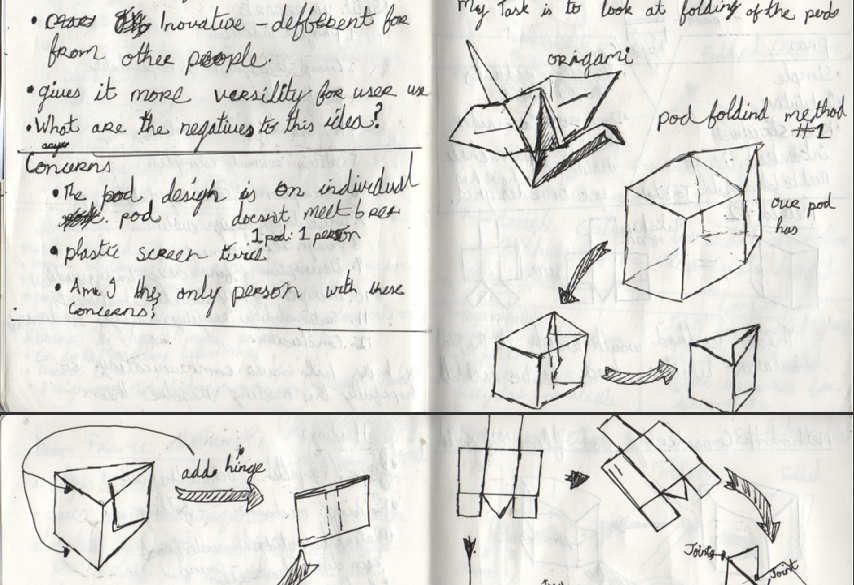 • Inovative - defferent for
from other people.
• gives it more versility for user use
• What are the negatives to this idea?
Concerns
• The pod design is on individual
pod doesnt meet
1 pod: 1 person
• plastic screen
• Am I the only person with these
Concerns?
My Task is to look at folding of the pods
origami
pod foldind method
#1
our pod
has
add hinge
Joints
Joint